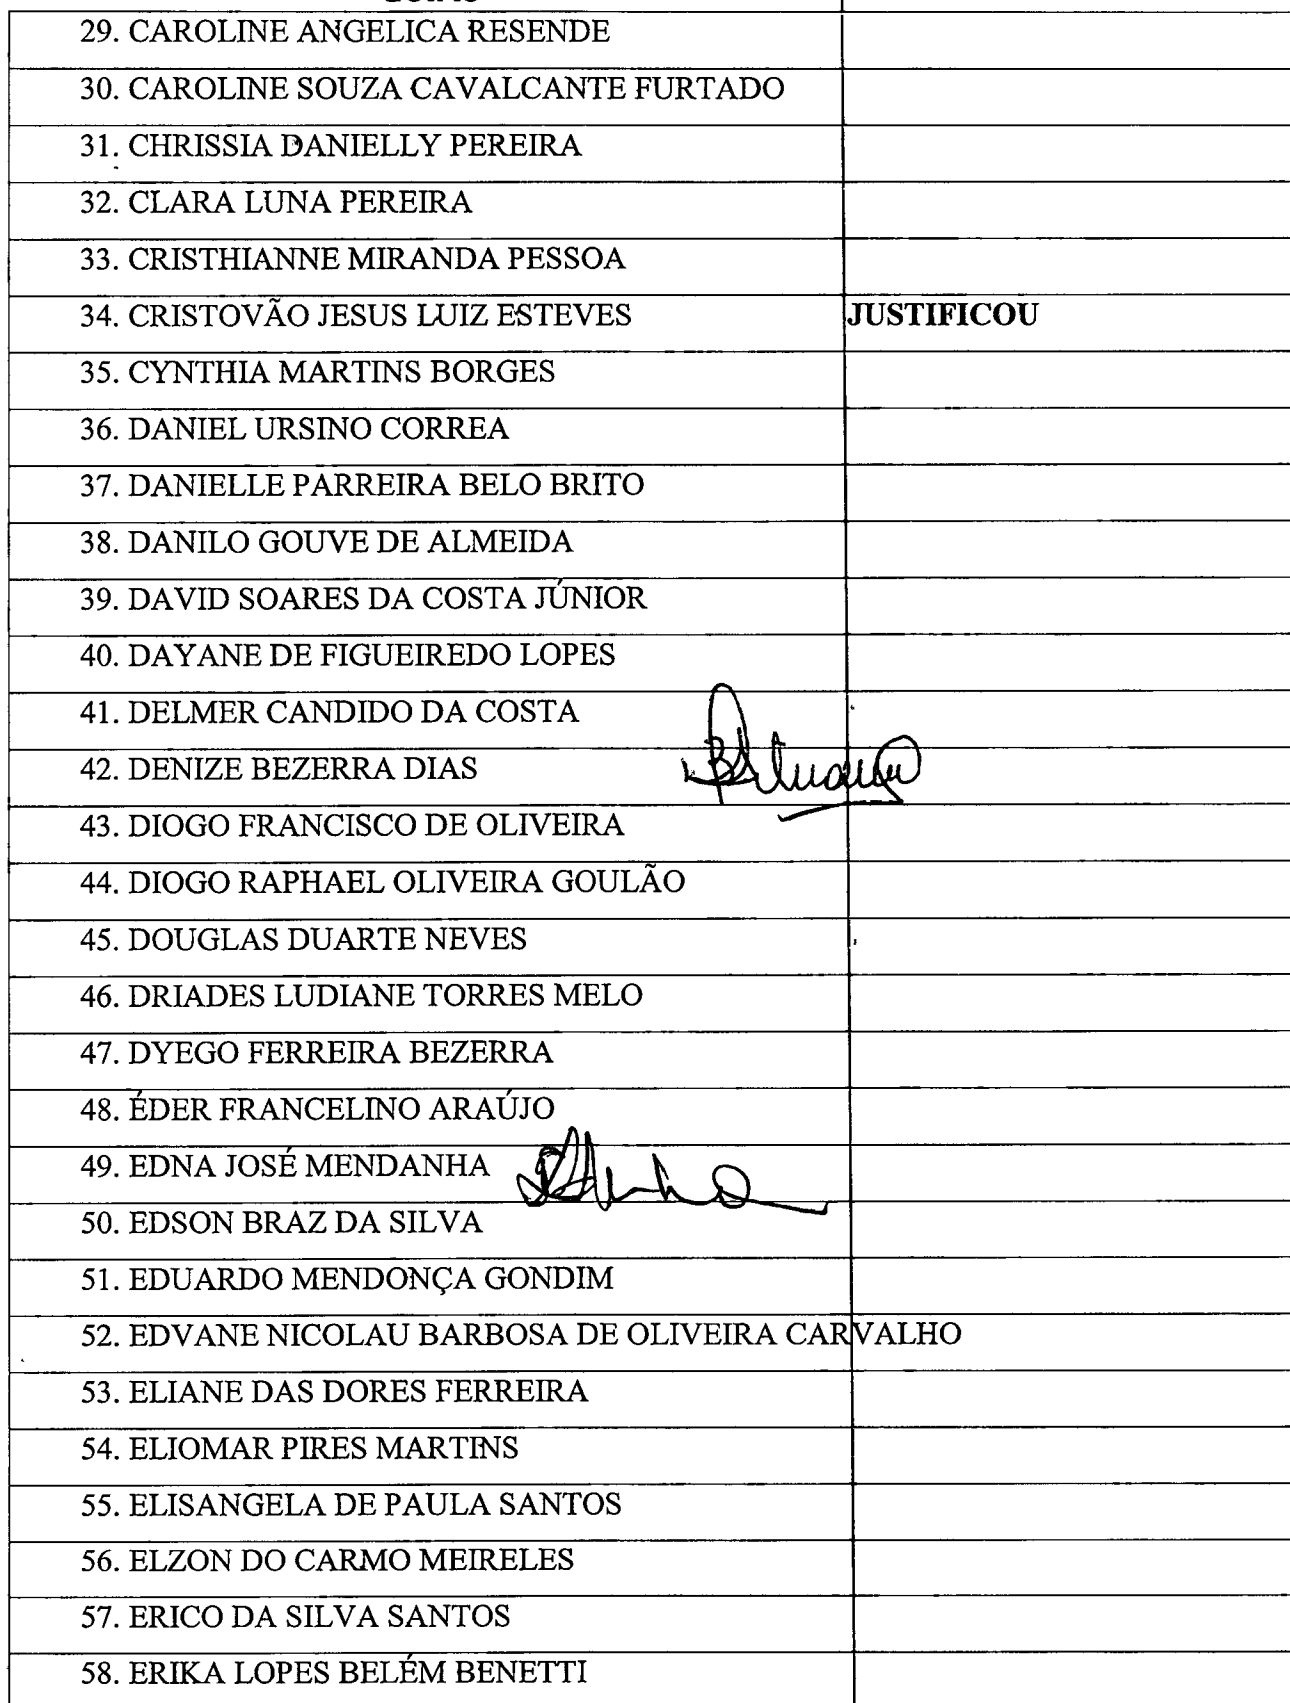 29. CAROLINE ANGELICA RESENDE
30. CAROLINE SOUZA CAVALCANTE FURTADO
31. CHRISSIA DANIELLY PEREIRA
32. CLARA LUNA PEREIRA
33. CRISTHIANNE MIRANDA PESSOA
34. CRISTOVÃO JESUS LUIZ ESTEVES JUSTIFICOU
35. CYNTHIA MARTINS BORGES
36. DANIEL URSINO CORREA
37. DANIELLE PARREIRA BELO BRITO
38. DANILO GOUVE DE ALMEIDA
39. DAVID SOARES DA COSTA JÚNIOR
40. DAYANE DE FIGUEIREDO LOPES
41. DELMER CANDIDO DA COSTA
42. DENIZE BEZERRA DIAS
43. DIOGO FRANCISCO DE OLIVEIRA
44. DIOGO RAPHAEL OLIVEIRA GOULÃO
45. DOUGLAS DUARTE NEVES
46. DRIADES LUDIANE TORRES MELO
47. DYEGO FERREIRA BEZERRA
48. ÉDER FRANCELINO ARAÚJO
49. EDNA JOSÉ MENDANHA
50. EDSON BRAZ DA SILVA
51. EDUARDO MENDONÇA GONDIM
52. EDVANE NICOLAU BARBOSA DE OLIVEIRA CARVALHO
53. ELIANE DAS DORES FERREIRA
54. ELIOMAR PIRES MARTINS
55. ELISANGELA DE PAULA SANTOS
56. ELZON DO CARMO MEIRELES
57. ERICO DA SILVA SANTOS
58. ERIKA LOPES BELÉM BENETTI